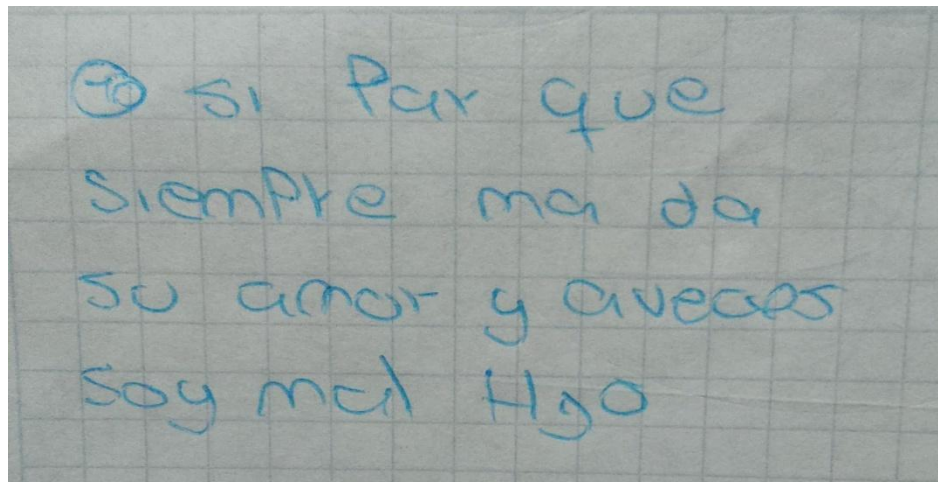 10 si Par que
siempre ma da
su amor y aveces
soy mal Hjo